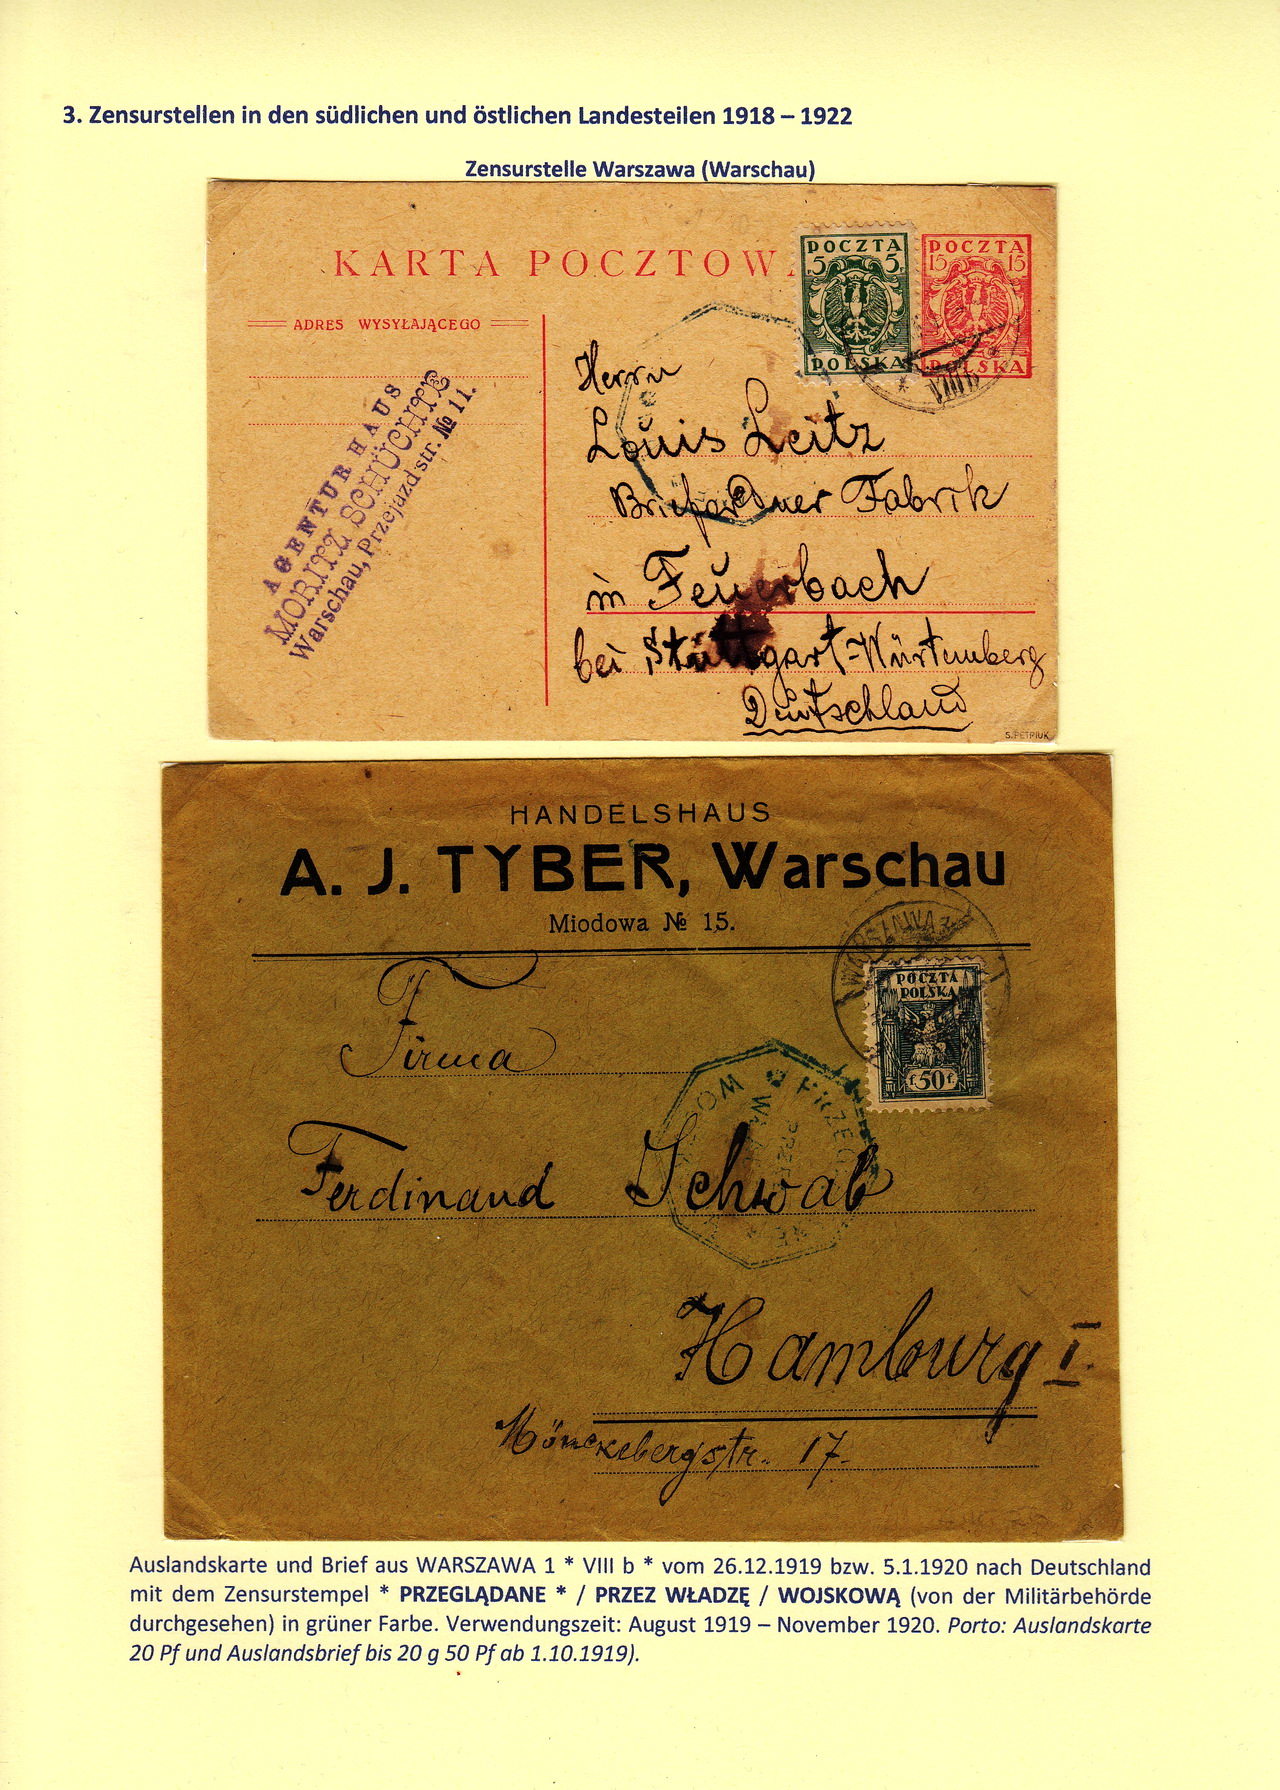 3. Zensurstellen in den südlichen und östlichen Landesteilen 1918 – 1922
Zensurstelle Warszawa (Warschau)
KARTA POCZTOWA
POCZTA
5 5
POLSKA
POCZTA
15 15
POLSKA
VIII b
ADRES WYSYŁAJĄCEGO
AGENTURHAUS
MORITZ SCHÜCHTE
Warschau, Przejazdstr. № 11.
Herrn
Louis Leitz
Briefordner Fabrik
in Feuerbach
bei Stuttgart-Würtemberg
Deutschland
S. PETRIUK
HANDELSHAUS
A. J. TYBER, Warschau
Miodowa № 15.
WARSZAWA
POCZTA
POLSKA
f 50 f
Firma
Ferdinand Schwab
Hamburg I.
Mönckebergstr. 17.
Auslandskarte und Brief aus WARSZAWA 1 * VIII b * vom 26.12.1919 bzw. 5.1.1920 nach Deutschland
mit dem Zensurstempel * PRZEGLĄDANE * / PRZEZ WŁADZĘ / WOJSKOWĄ (von der Militärbehörde
durchgesehen) in grüner Farbe. Verwendungszeit: August 1919 – November 1920. Porto: Auslandskarte
20 Pf und Auslandsbrief bis 20 g 50 Pf ab 1.10.1919).